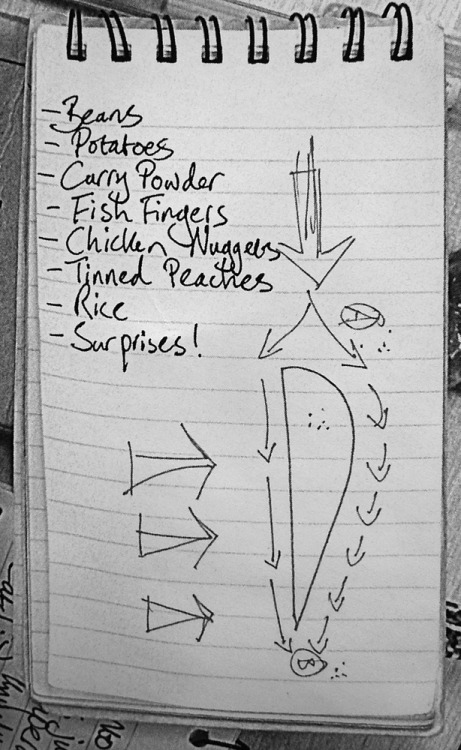 - Beans
- Potatoes
- Curry Powder
- Fish Fingers
- Chicken Nuggets
- Tinned Peaches
- Rice
- Surprises!
A
B